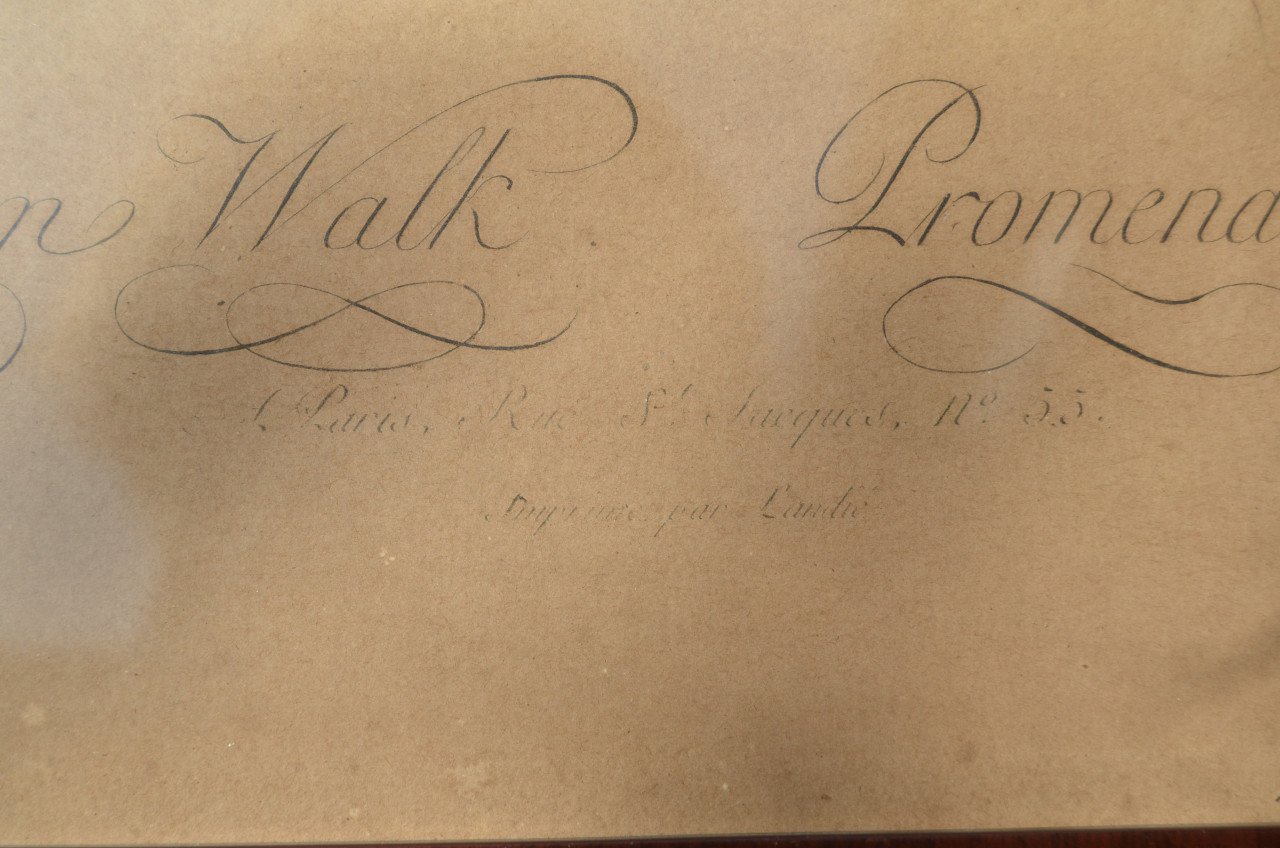 n Walk Promena
A Paris, Rue St. Jacques, No. 55.
Imprimé par